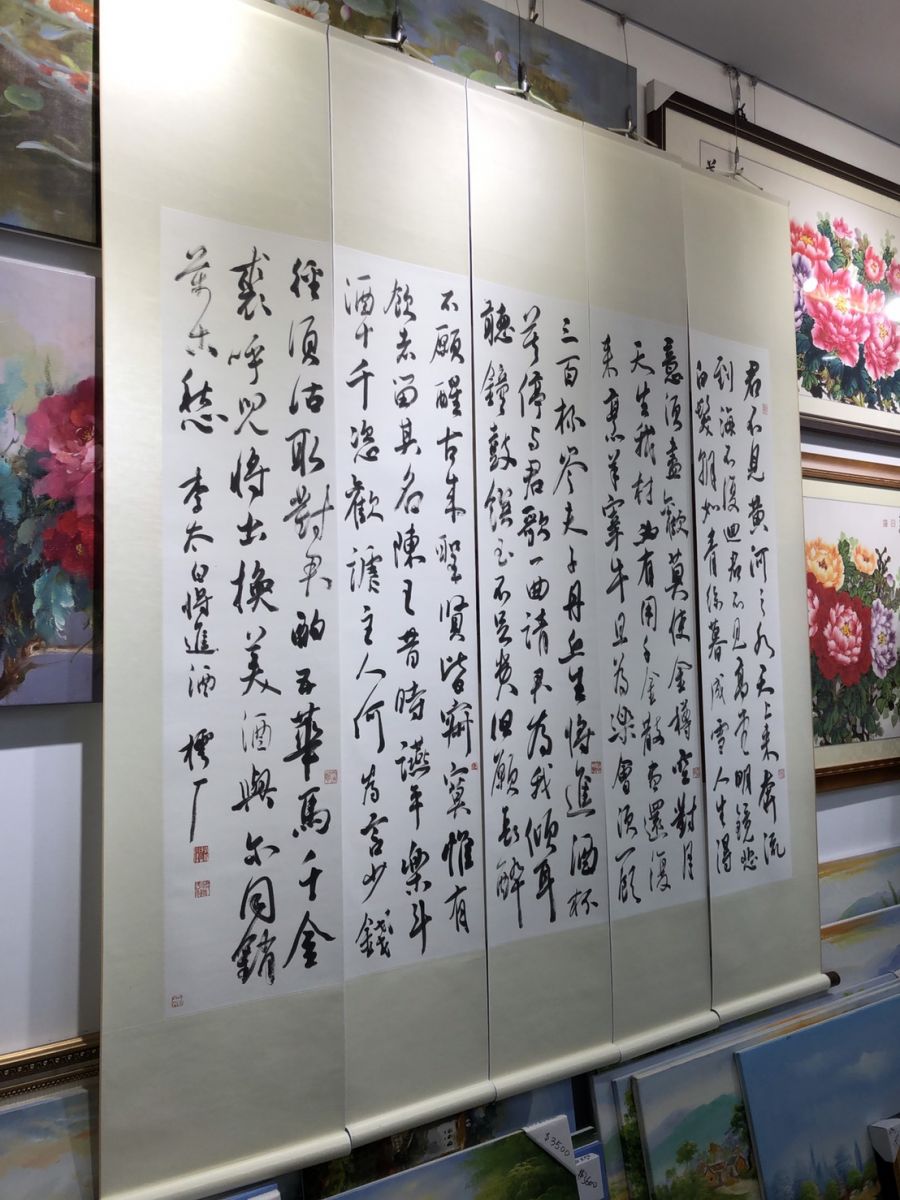 君不見黃河之水天上来奔流
到海不復迴君不見高堂明鏡悲
白髮朝如青絲暮成雪人生得
意須盡歡莫使金樽空對月
天生我材必有用千金散盡還復
来烹羊宰牛且為樂會須一飲
三百杯岑夫子丹丘生將進酒杯
莫停与君歌一曲請君為我傾耳
聽鐘鼓饌玉不足貴但願長醉
不願醒古来聖賢皆寂寞惟有
飲者留其名陳王昔時讌平樂斗
酒十千恣歡謔主人何為言少錢
徑須沽取對君酌五華馬千金
裘呼兒將出換美酒與尔同銷
萬古愁 李太白將進酒
$3500